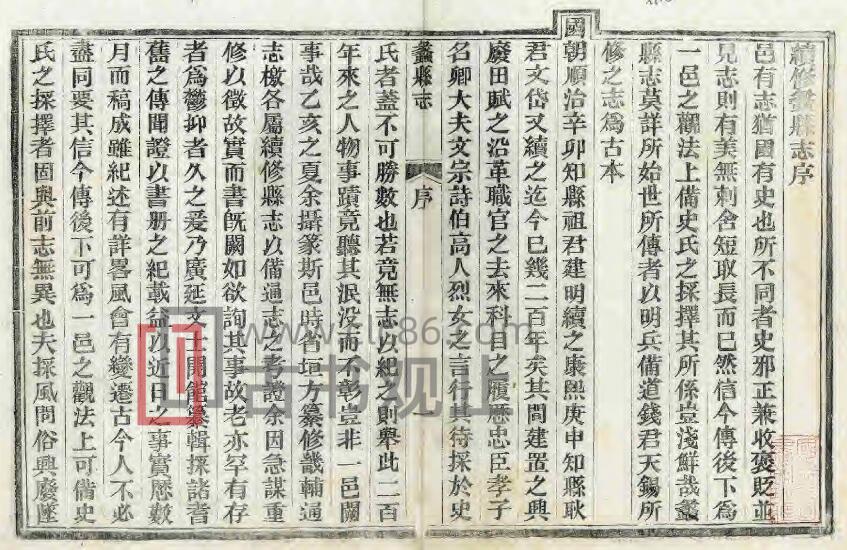 續修蠡縣志序
邑有志猶國有史也所不同者史邪正兼收褒貶並
見志則有美無刺舍短取長而已然信今傳後下爲
一邑之觀法上備史氏之採擇其所係豈淺鮮哉蠡
縣志莫詳所始世所傳者以明兵備道錢君天錫所
修之志爲古本
國朝順治辛卯知縣祖君建明續之康熙庚申知縣耿
君文岱又續之迄今已幾二百年矣其間建置之興
廢田賦之沿革職官之去來科目之履歷忠臣孝子
名卿大夫文宗詩伯高人烈女之言行其待採於史
蠡縣志
序
一
氏者蓋不可勝數也若竟無志以紀之則舉此二百
年來之人物事蹟竟聽其泯没而不彰豈非一邑闕
事哉乙亥之夏余攝篆斯邑時省垣方纂修畿輔通
志檄各屬續修縣志以備通志之考證余因急謀重
修以徵故實而書旣闕如欲詢其事故老亦罕有存
者爲鬱抑者久之爰乃廣延文士開館纂輯採諸耆
舊之傳聞證以書册之紀載益以近日之事實歷數
月而稿成雖紀述有詳畧風會有變遷古今人不必
盡同要其信今傳後下可爲一邑之觀法上可備史
氏之採擇者固與前志無異也夫採風問俗興廢墜
www.clc86.com
古书观上